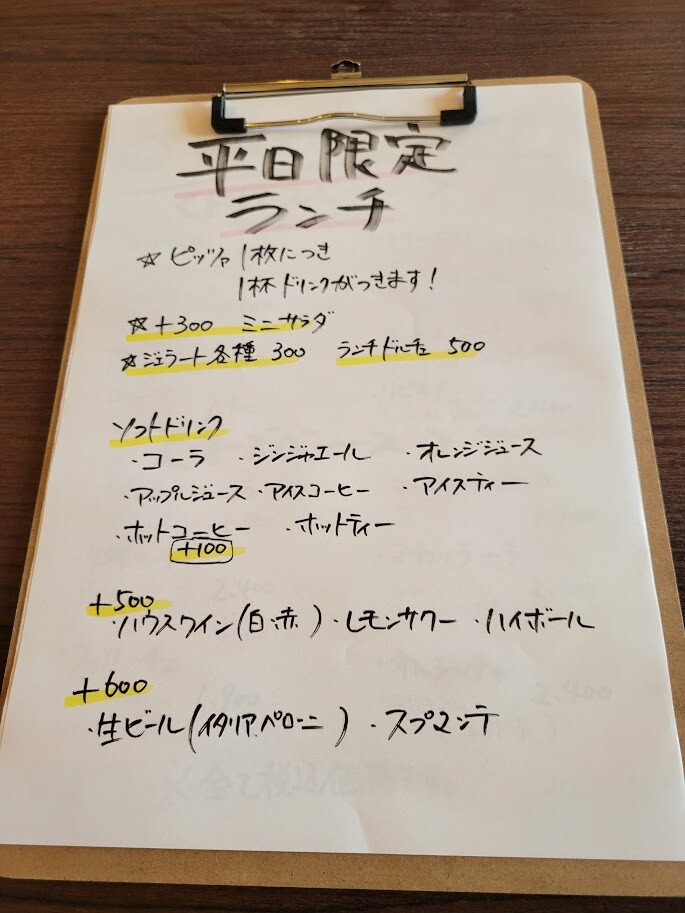 平日限定
ランチ
☆ピッツァ1枚につき
1杯ドリンクがつきます!
☆+300 ミニサラダ
☆ジェラート各種 300 ランチドルチェ 500
ソフトドリンク
・コーラ ・ジンジャエール ・オレンジジュース
・アップルジュース ・アイスコーヒー ・アイスティー
・ホットコーヒー ・ホットティー
+100
+500
・ハウスワイン(白・赤) ・レモンサワー ・ハイボール
+600
・生ビール(イタリア、ペローニ) ・スプマンテ
2.400
1.900
2.400
※全て税込価格です。